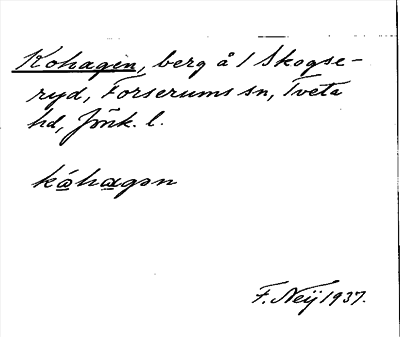 Kohagen, berg å 1 Skogse-
ryd, Forserums sn, Tveta
hd, Jönk. l.
kóhagən
F. Neÿ 1937.